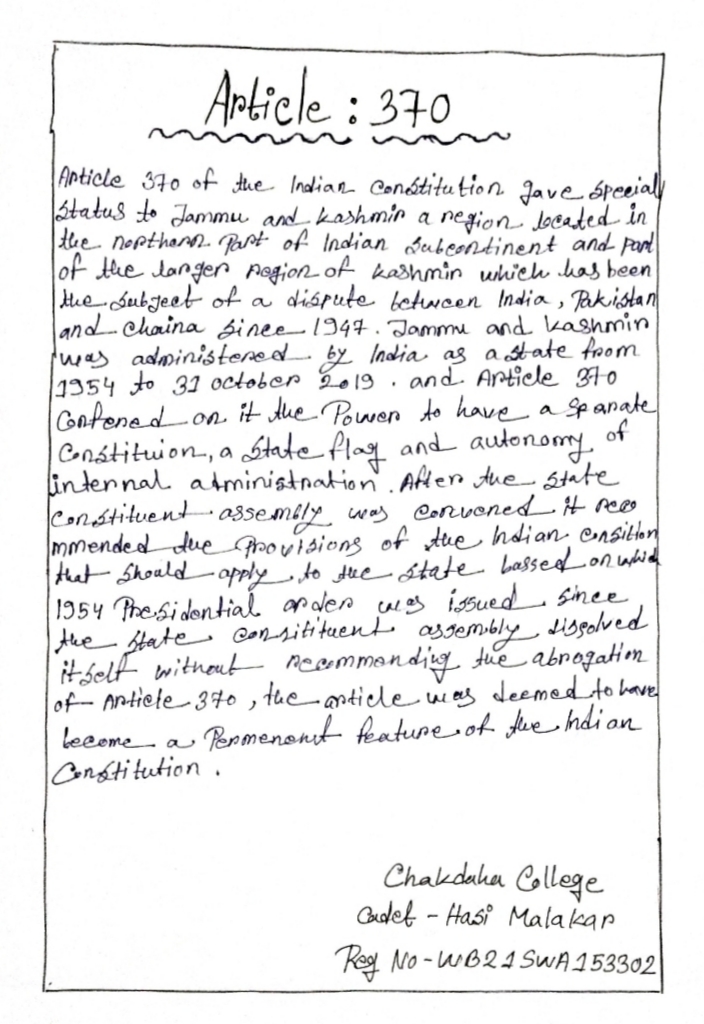 Article : 370
Article 370 of the Indian Constitution gave special
status to Jammu and kashmir a region located in
the northern part of Indian subcontinent and part
of the larger region of kashmir which has been
the subject of a dispute between India, Pakistan
and Chaina since 1947. Jammu and kashmir
was administered by India as a state from
1954 to 31 october 2019. and Article 370
Confered on it the Power to have a sparate
Constituion, a state flag and autonomy of
internal administration. After the state
constituent assembly was convened it reco
mmended the provisions of the Indian consition
that should apply to the state bassed on which
1954 Presidential order was issued since
the state consitituent assembly dissolved
itself without recommending the abrogation
of Article 370, the article was deemed to have
become a Permenent feature of the Indian
Constitution.
Chakdaha College
Cadet - Hasi Malakar
Reg No - WB21SWA153302